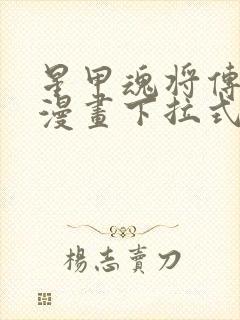 星甲魂将傳
漫畫下拉式
楊志賣刀